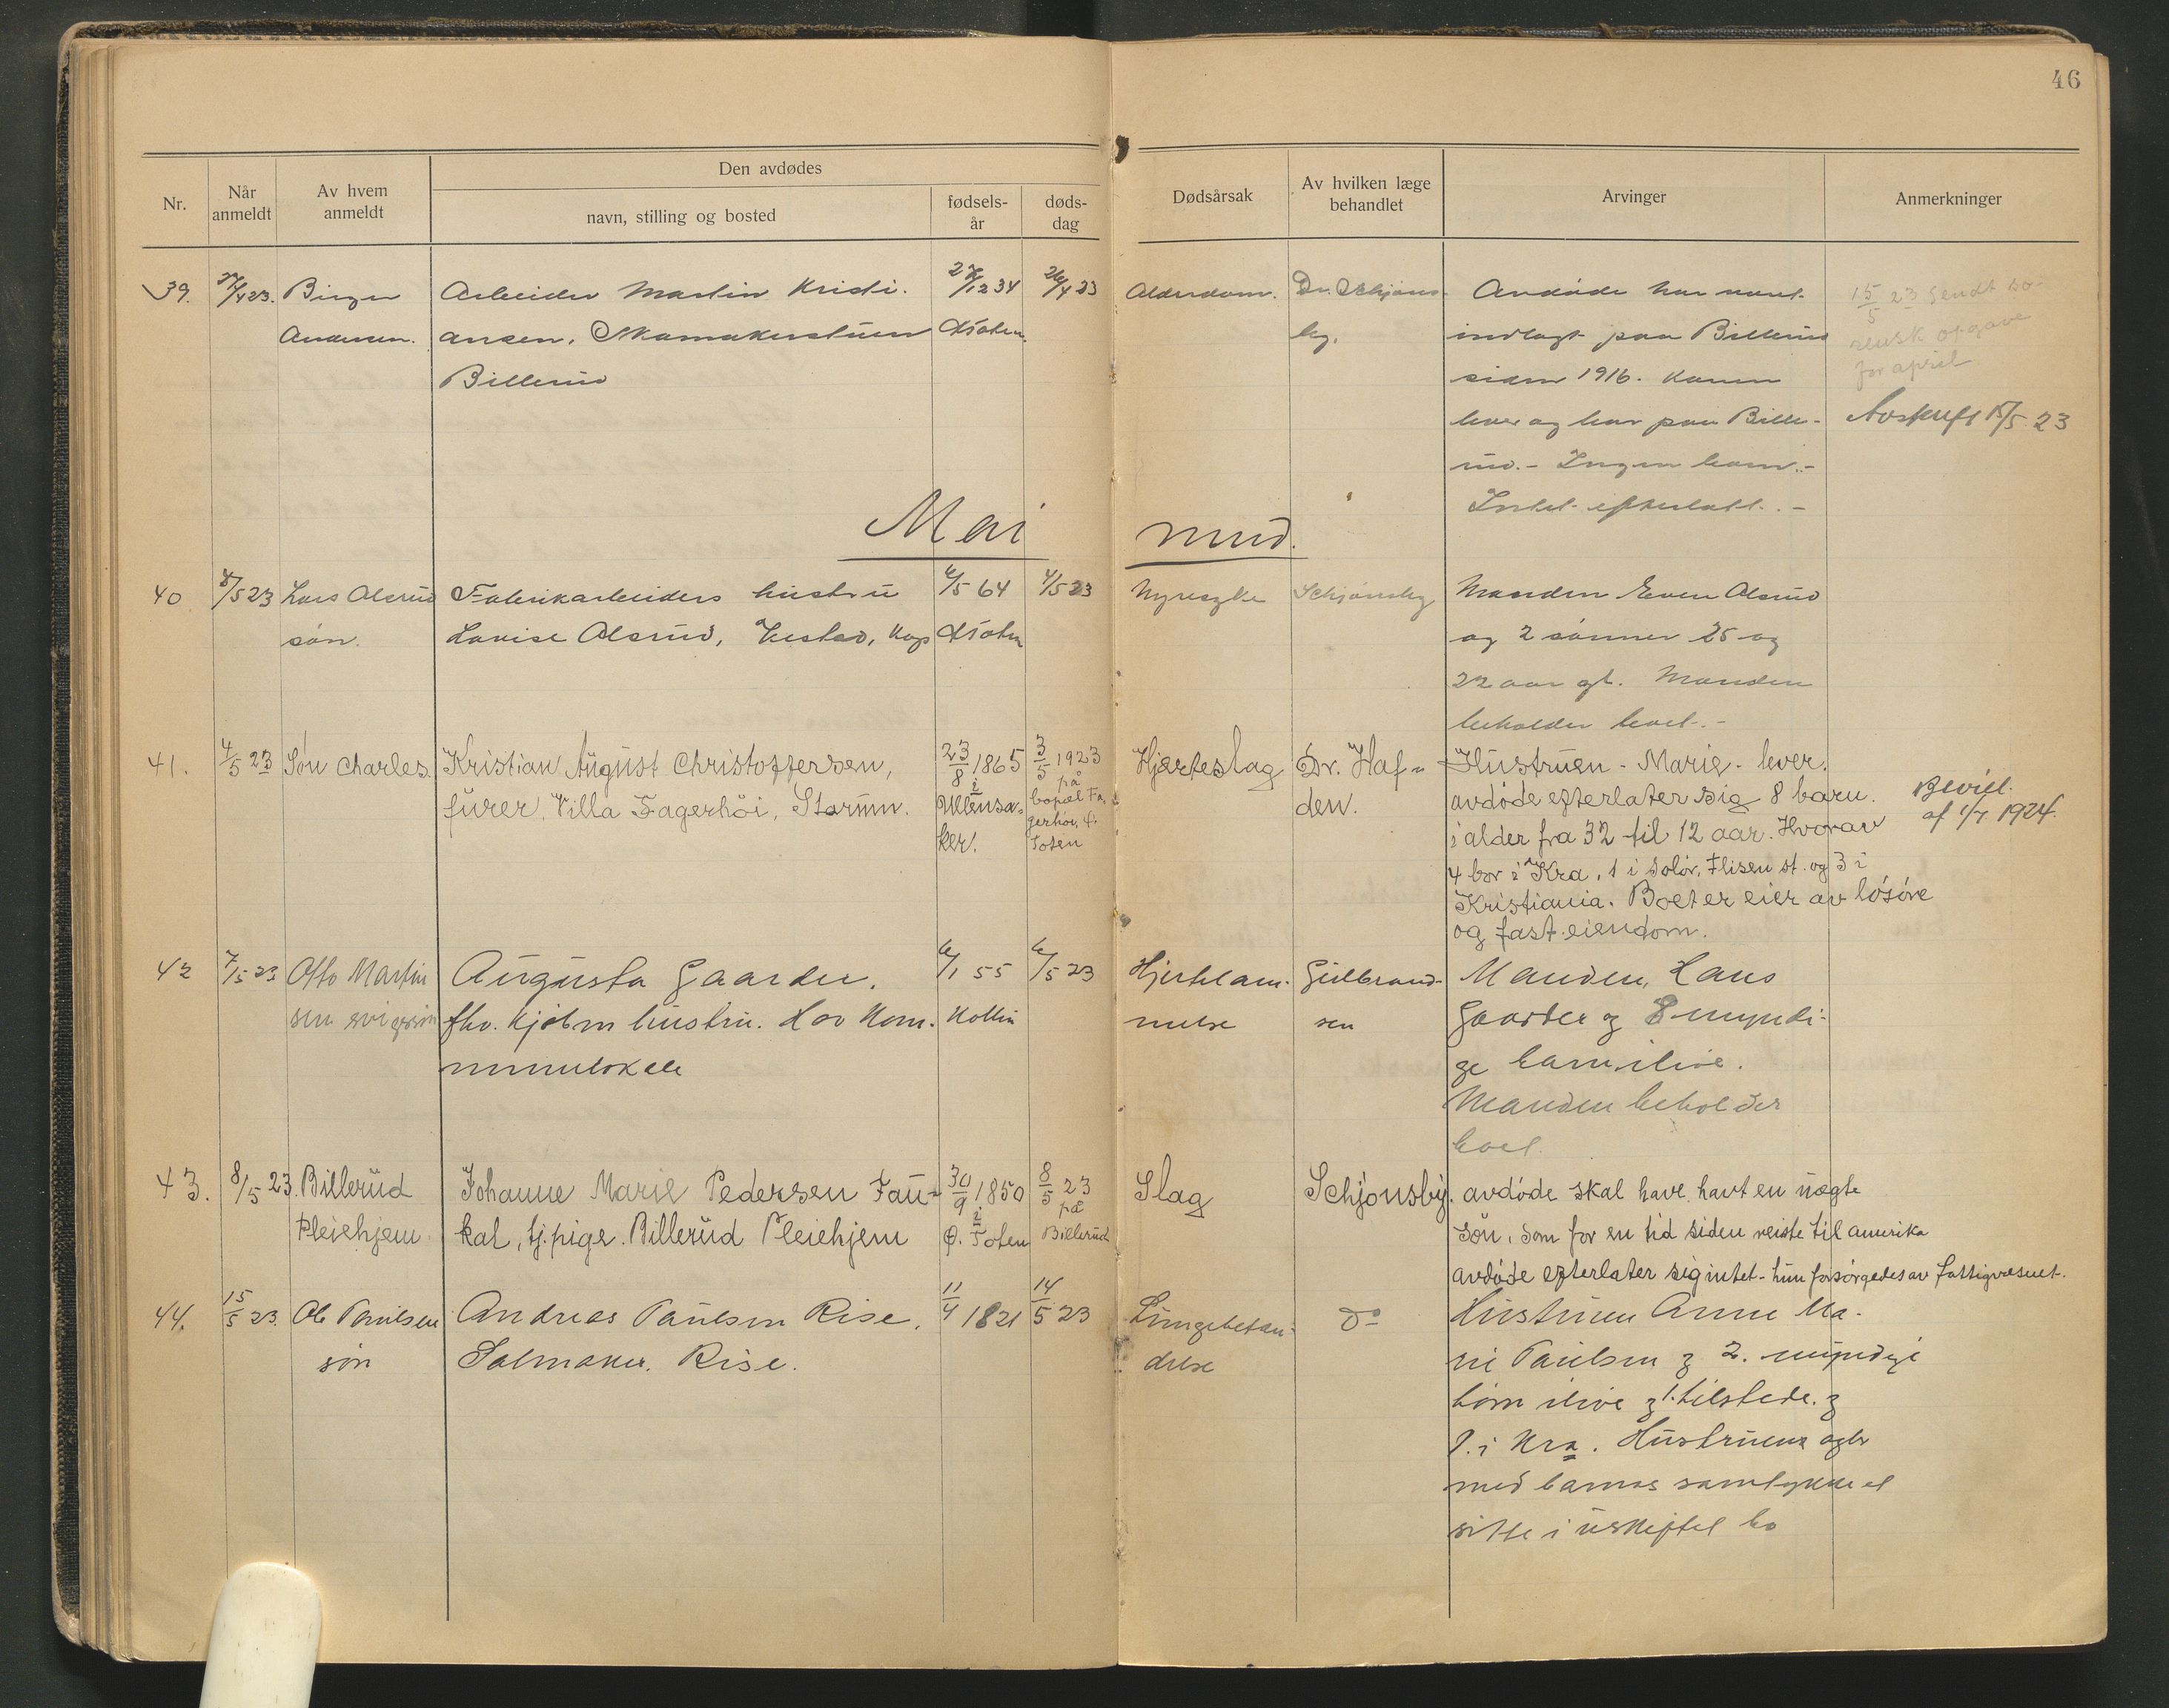 46
Nr.
Når anmeldt
Av hvem anmeldt
Den avdødes
navn, stilling og bosted
fødsels-
år
døds-
dag
Dødsårsak
Av hvilken læge behandlet
Arvinger
Anmerkninger
39. 27/4 23. Birger Arbeider Martin Kristi- 27/12 34 26/4 23 Alderdom. Dr. Schjøns- Avdøde har vært
Andersen. ansen, Skomakerstuen Ø Toten. by. indlagt paa Billerud
Billerud siden 1916. Konen
lever og bor paa Bille-
rud. - Ingen barn. -
Intet efterlatt. -
15/5 23 Sendt so-
rensk opgave
for april
Avskrift 15/5 23
Mai mnd.
40 /5 23 Lars Alsrud Fabrikarbeiders hustru 6/5 64 4/5 23 Nyresyke Schjønsby Manden Even Alsrud
søn. Lovise Alsrud, Kap Ø Toten og 2 sønner 25 og
22 aar gl. Manden
beholder boet. -
41. 4/5 23 Søn Charles. Kristian August Christoffersen, 23/8 1865 3/5 1923 Hjerteslag Dr. Haf- Hustruen - Marie - lever.
furer, Villa Fagerhöi, Starum. i Ullensa- på bopæl Fa- den. avdøde efterlater sig 8 barn.
ker. gerhöi, Ø. Toten i alder fra 32 til 12 aar. Hvorav
4 bor i Kra, 1 i Solør, Flisen st. og 3 i
Kristiania. Boet er eier av løsøre
og fast eiendom.
Bevill.
af 1/7 1924.
42 7/5 23 Otto Martin Augusta Gaarder. 6/1 55 6/5 23 Hjertelam- Gulbrand- Manden, Hans
sen svigersøn fhv. kjøbm hustru. Hov Kom- Kolbu melse sen Gaarder og 8 myndi-
munelokale ge barn ilive.
Manden beholder
boet.
43. 8/5 23. Billerud Johanne Marie Pedersen Fau- 30/9 1850 8/5 23 Slag Schjønsby. avdøde skal have havt en uægte
Pleiehjem kal, tj.pige. Billerud Pleiehjem i Ø. Toten på Billerud søn, som for en tid siden reiste til Amerika
avdøde efterlater sig intet - hun forsørgedes av fattigvæsnet.
44. 15/5 23. Ole Paulsen Andreas Paulsen Rise, 11/4 1821 14/5 23 Lungebetæn- do Hustruen Anne Ma-
søn Salmaker. Rise. delse rie Paulsen og 2. myndige
børn ilive og 1. tilstede. og
1. i Kra. Hustruen agter
med barnas samtykke at
sitte i uskiftet bo